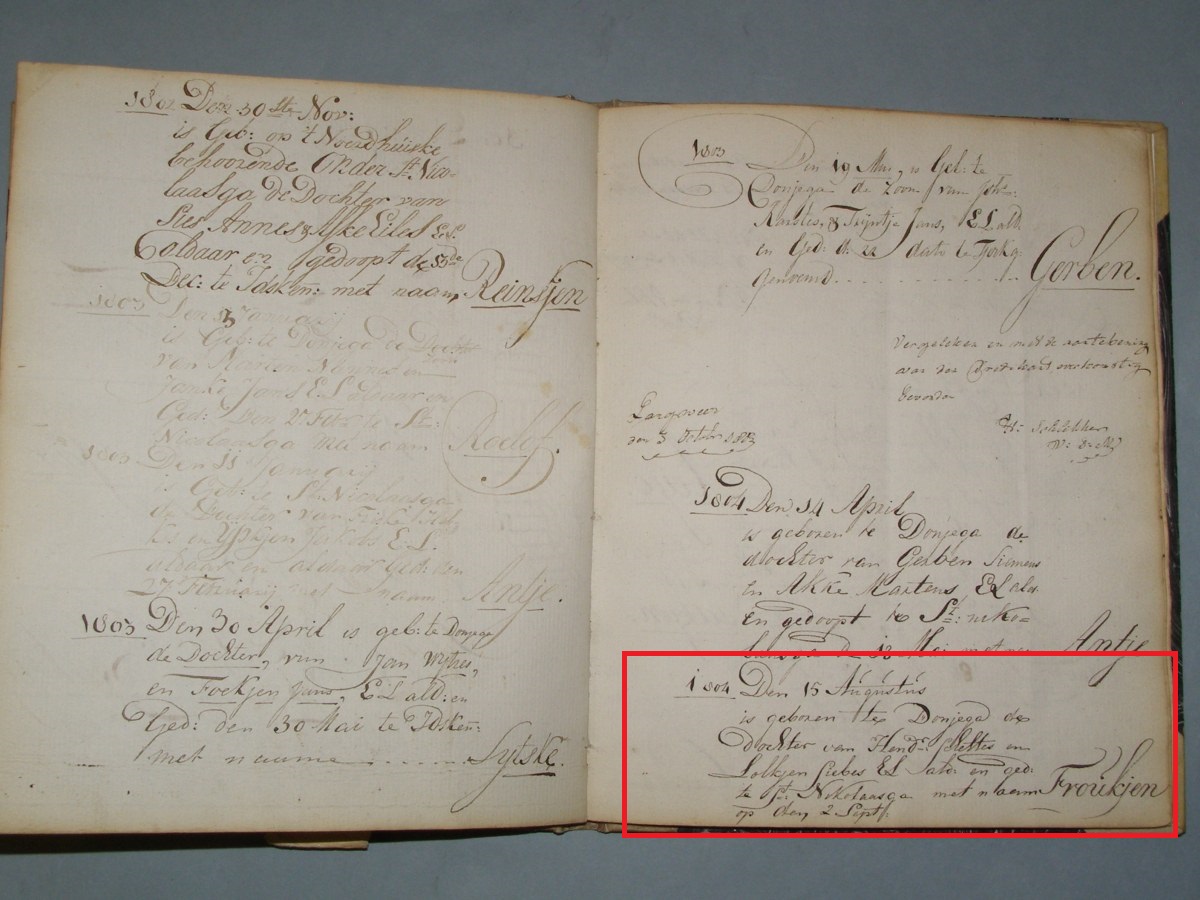 1802 Den 30ste Nov:
is Geb: op 't Noordhuiske
behoorende Onder St. Nico-
laasga de Dochter van
Sies Annes & Afke Eiles E.L.
aldaar en gedoopt de
Dec: te Idsken: met naam Reinsjen
1803 Den Januarij
is Geb: te Donjega de Docht
van Marten en
Janke Jans E.L. aldaar en
Ged: Den 2 Febr te St:
Nicolaasga met naam Roelof.
1803 Den 11 Januarij
is Geb: te St. Nicolaasga
de Dochter van Fokke
en Ypkjen Jakobs E.L.
aldaar en aldaar Ged: den
27 Februarij met naam Antje.
1803 Den 30 April is geb: te Donjega
de Dochter, van Jan Wytses,
en Foekjen Jans, E.L. ald: en
Ged: den 30 Mai te Idsken:
met naame ..... Sytske.
1803 Den 19 Mai, is Geb: te
Donjega de Zoon van
& Trijntje Jans, E.L. ald.
en Ged: d: 22 dito te
genoemd .......... Gerben.
Vergeleken en met de aantekening
van den overkomstig
bevonden
Langweer
den 3 Octobr 1803
1804 Den 14 April
is geboren te Donjega de
dochter van Gerben Siemens
en Akke Martens, E.L. ald.
en gedoopt te St: niko-
lasga d 12 Mai met na Antje
1804 Den 15 Augustus
is geboren te Donjega de
Dochter van Hendr: Meltes en
Lolkjen Siebes E.L. tald: en ged:
te St: Nikolaasga met naam Froukjen
op den 2 Septr